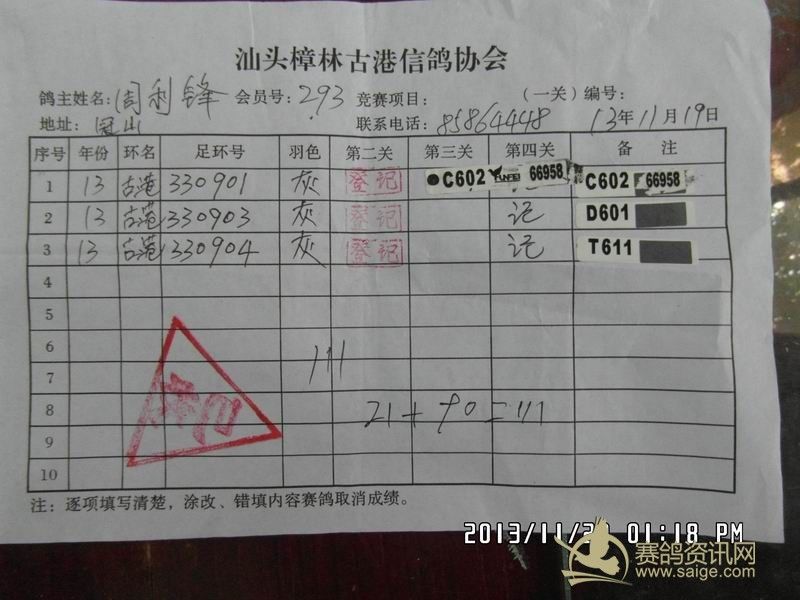 汕头樟林古港信鸽协会
鸽主姓名: 周利锋 会员号: 293 竞赛项目: (一关) 编号:
地址: 冠山 联系电话: 85864448 13年11月19日
序号 年份 环名 足环号 羽色 第二关 第三关 第四关 备 注
1 13 古港 330901 灰 登记 C602 YUNFEI 66958 C602 66958
2 13 古港 330903 灰 登记 记 D601
3 13 古港 330904 灰 登记 记 T611
4
5
6
111
7
8 21+90=111
9
10
注: 逐项填写清楚，涂改、错填内容赛鸽取消成绩。
01:18 PM
赛鸽资讯网
www.saige.com